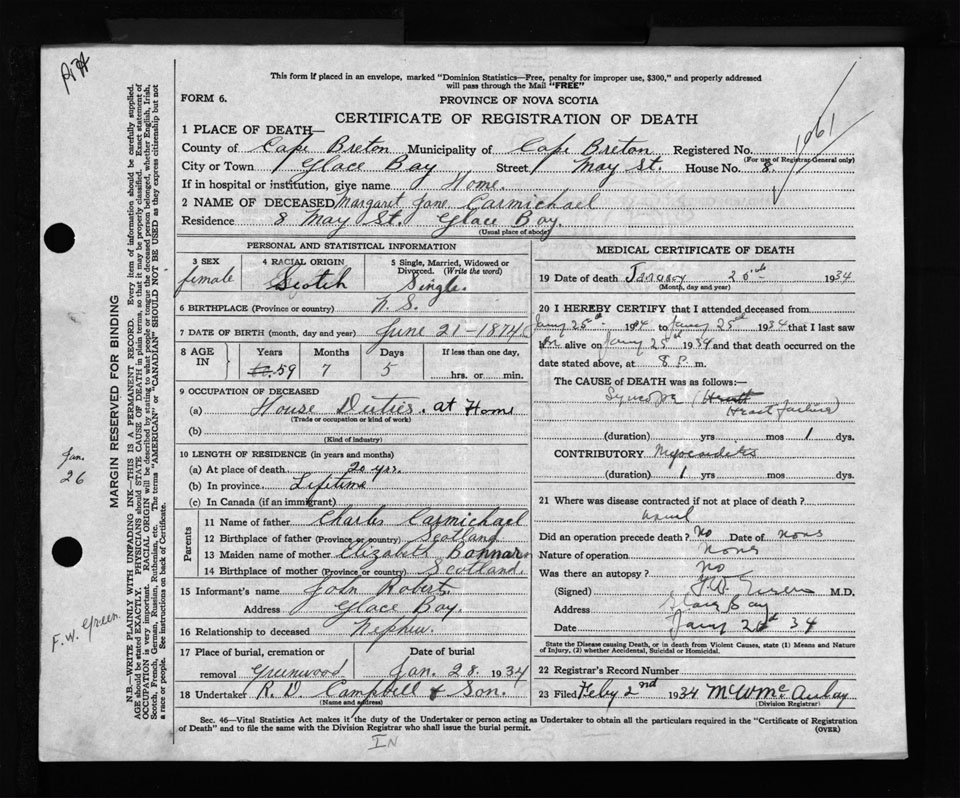 This form if placed in an envelope, marked "Dominion Statistics—Free, penalty for improper use, $300," and properly addressed
will pass through the Mail "FREE"
FORM 6.
PROVINCE OF NOVA SCOTIA
CERTIFICATE OF REGISTRATION OF DEATH
1061
1 PLACE OF DEATH—
County of Cape Breton Municipality of Cape Breton Registered No.
(For use of Registrar-General only)
City or Town Glace Bay Street May St. House No. 8
If in hospital or institution, give name Home.
2 NAME OF DECEASED Margaret Jane Carmichael
Residence 8 May St. Glace Bay.
(Usual place of abode)
PERSONAL AND STATISTICAL INFORMATION
3 SEX female
4 RACIAL ORIGIN Scotch
5 Single, Married, Widowed or Divorced. (Write the word) Single.
6 BIRTHPLACE (Province or country) N. S.
7 DATE OF BIRTH (month, day and year) June 21 - 1874
8 AGE IN Years 59 Months 7 Days 5 If less than one day, hrs. or min.
9 OCCUPATION OF DECEASED
(a) House Duties. at Home
(Trade or occupation or kind of work)
(b)
(Kind of industry)
10 LENGTH OF RESIDENCE (in years and months)
(a) At place of death 20 yrs.
(b) In province Lifetime
(c) In Canada (if an immigrant)
Parents
11 Name of father Charles Carmichael
12 Birthplace of father (Province or country) Scotland
13 Maiden name of mother Elizabeth
14 Birthplace of mother (Province or country) Scotland.
15 Informant's name John Robert
Address Glace Bay.
16 Relationship to deceased Nephew.
17 Place of burial, cremation or removal Greenwood
Date of burial Jan. 28. 1934
18 Undertaker R. D. Campbell & Son.
(Name and address)
MEDICAL CERTIFICATE OF DEATH
19 Date of death January 1934
(Month, day and year)
20 I HEREBY CERTIFY that I attended deceased from
Jany 25th 1934 to Jany 25th 1934 that I last saw
alive on Jany 25th 1934 and that death occurred on the
date stated above, at 8 P. m.
The CAUSE OF DEATH was as follows:—
Syncope (Heart
Heart failure)
(duration) yrs mos 1 dys.
CONTRIBUTORY Myocarditis
(duration) 1 yrs mos dys.
21 Where was disease contracted if not at place of death?
Did an operation precede death? No Date of none
Nature of operation none
Was there an autopsy? no
(Signed) M.D.
Address Glace Bay
Date Jany 26th 34
State the Disease causing Death, or in death from Violent Causes, state (1) Means and Nature
of Injury, (2) whether Accidental, Suicidal or Homicidal.
22 Registrar's Record Number
23 Filed Feby 2nd 1934 McAulay
(Division Registrar)
Sec. 46—Vital Statistics Act makes it the duty of the Undertaker or person acting as Undertaker to obtain all the particulars required in the "Certificate of Registration
of Death" and to file the same with the Division Registrar who shall issue the burial permit.
(OVER)
IN
MARGIN RESERVED FOR BINDING
N.B.—WRITE PLAINLY WITH UNFADING INK—THIS IS A PERMANENT RECORD. Every item of information should be carefully supplied.
AGE should be stated EXACTLY. PHYSICIANS should STATE CAUSE OF DEATH in plain terms, so that it may be properly classified. Exact statement of
OCCUPATION is very important. RACIAL ORIGIN will be described by stating to what people or tongue the deceased person belonged, whether English, Irish,
Scotch, French, German, Russian, Ruthenian, etc. The terms "AMERICAN" or "CANADIAN" SHOULD NOT BE USED as they express citizenship but not
a race or people. See instructions on back of Certificate.
Jan.
26
F. W. Green